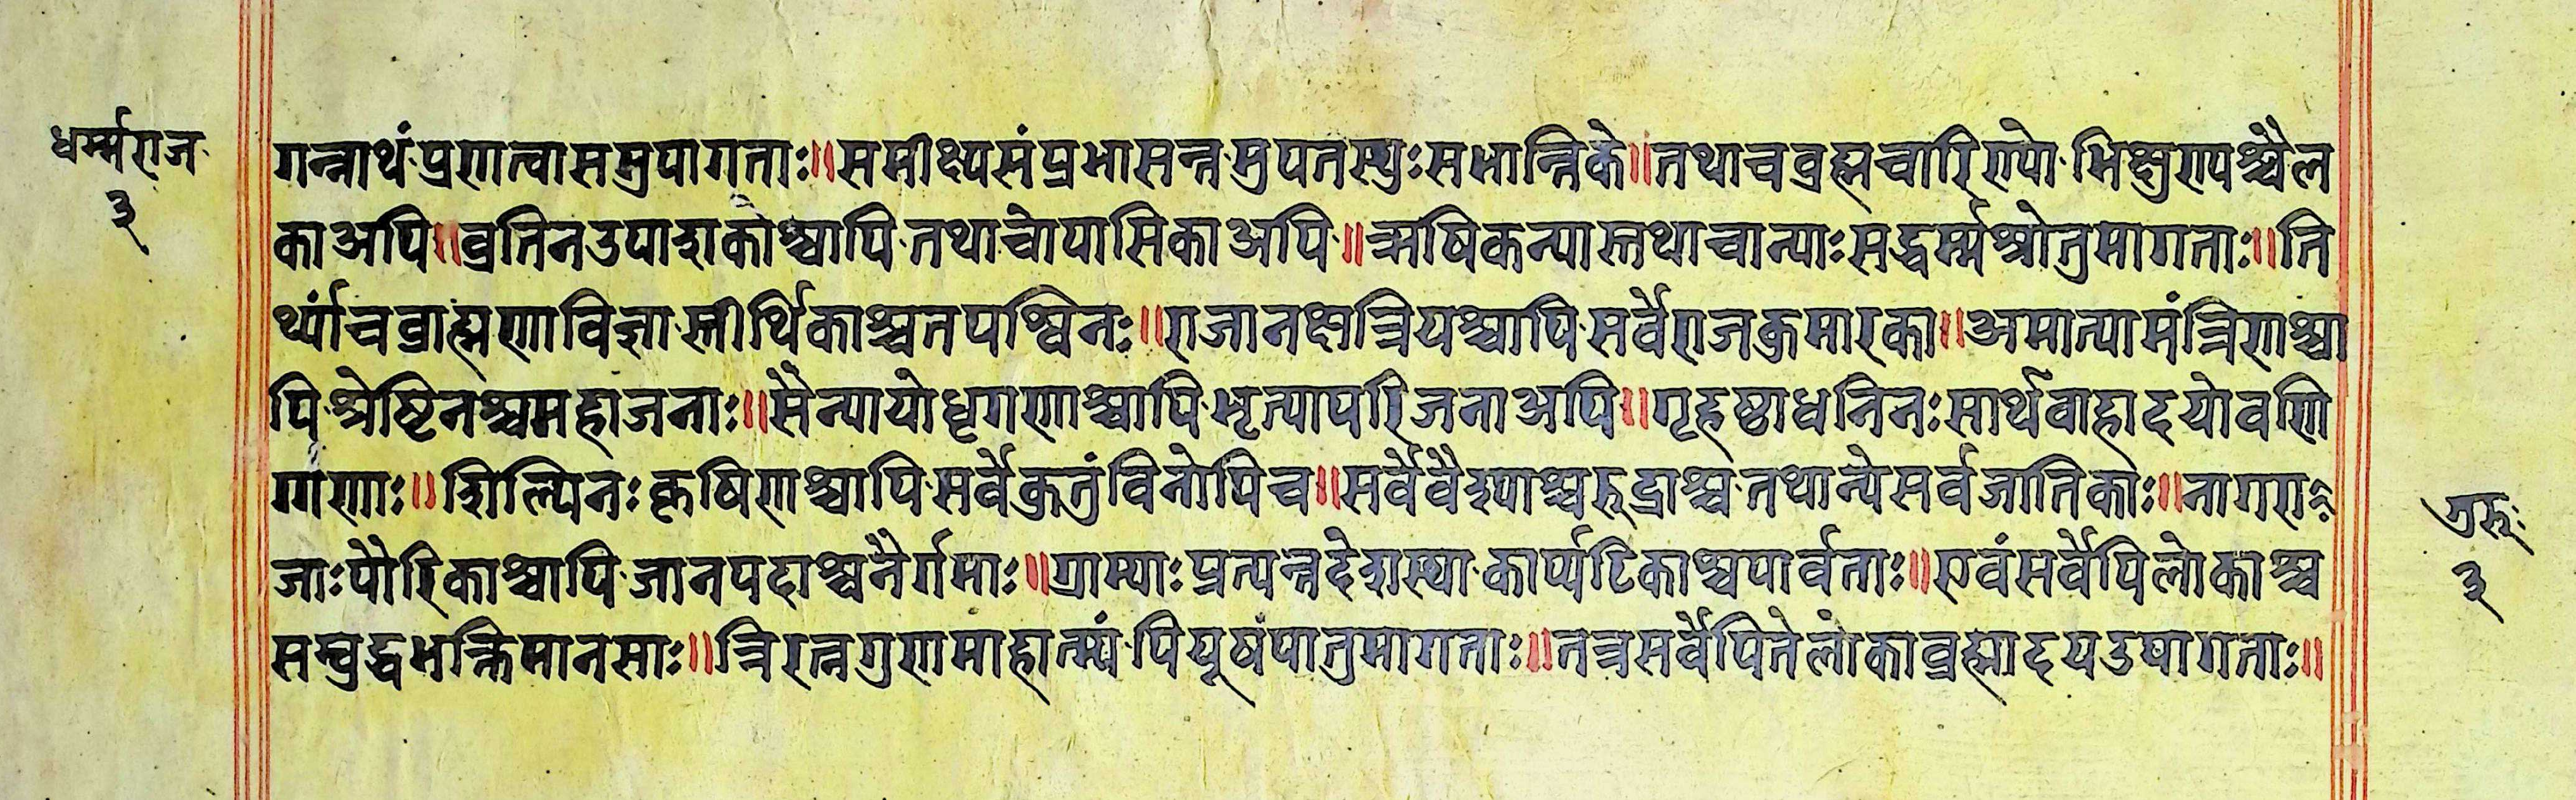 धर्म्मराज
३
गन्नाथं·प्रणत्वासमुपागताः॥समीक्ष्यसंप्रभासन्न·मुपतस्थुःसभान्तिके॥तथाचव्रह्मचारिण्यो·भिक्षुण्यश्चैल
काअपि॥व्रतिनउपाशकाेश्चापि·तथाचोपासिकाअपि·॥ऋषिकन्यास्तथाचान्याःसद्धर्म्मश्रोतुमागताः॥ति
र्थ्यांचव्राह्मणाविज्ञा·स्तीर्थिकाश्चतपश्विनः॥राजानक्षत्रियश्चापि·सर्वेराजकुमारका॥अमात्यामंत्रिणाश्चा
पि·श्रेष्टिनश्चमहाजनाः॥सैन्यायोधृगणाश्चापि·भृत्यापरिजनाअपि॥गृहष्ठाधनिनःसार्थवाहादयोवणि
ग्गणाः॥शिल्पिनःकृषिणाश्चापि·सर्वेकुतुंविनोपिच॥सर्वेवैश्याश्चशूद्राश्च·तथान्येसर्वजातिकाः॥नागरा
जाःपौरिकाश्चापि·जानपदाश्चनैर्गमाः॥ग्राम्याःप्रत्यन्तदेशस्था·कार्प्पटिकाश्चपार्वताः॥एवंसर्वेपिलोकाश्च
सम्वुद्धभक्तिमानसाः॥त्रिरत्नगुणमाहात्म्यं·पियूषंपातुमागताः॥तत्रसर्वेपितेलोकाव्रह्मादयउषागताः॥
गुरूः
३